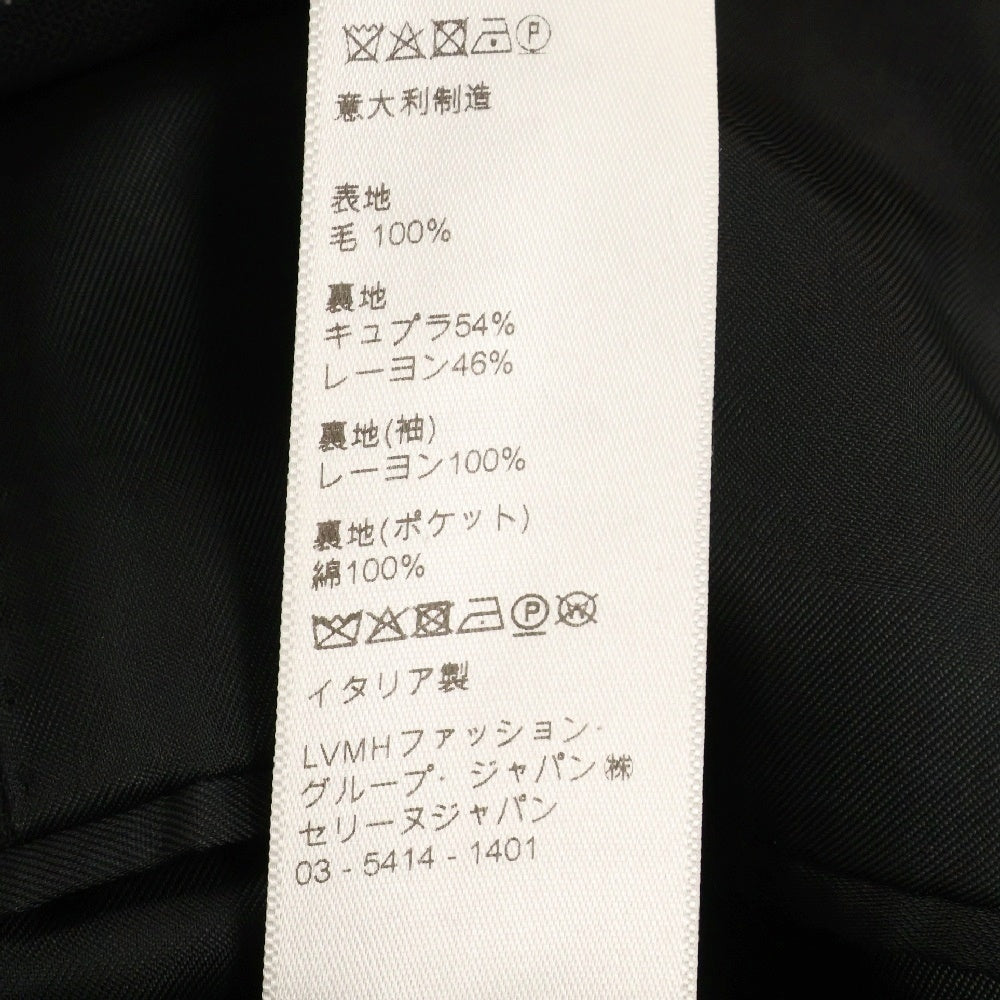 意大利制造
表地
毛 100%
裏地
キュプラ54%
レーヨン46%
裏地(袖)
レーヨン100%
裏地(ポケット)
綿100%
イタリア製
LVMHファッション・
グループ・ジャパン㈱
セリーヌジャパン
03 - 5414 - 1401